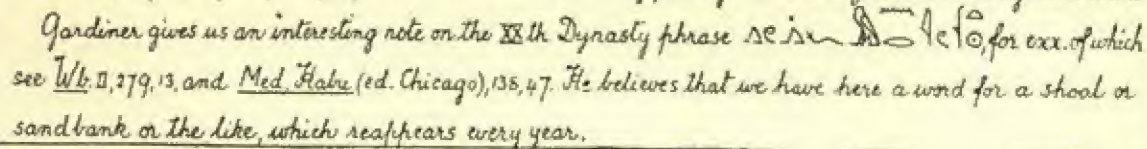 Gardiner gives us an interesting note on the XXth Dynasty phrase for exx. of which
see Wb. II, 279, 13, and Med. Habu (ed. Chicago), 138, 47. He believes that we have here a word for a shoal or
sandbank or the like, which reappears every year.